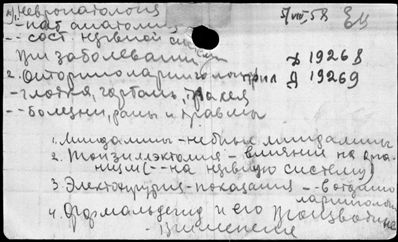 1. Невропатология 5/VIII, 58 Ец
- пат. анатомия
-- сост. нервной системы
при заболеваниях Д 19268
2. Оториноларингология Д 19269
- глотка, гортань, трахея
-- болезни, раны и травмы
1. Миндалины - небные миндалины
2. Тонзиллэктомия - влияние на орга-
низм (-- на нервную систему)
3. Электрохирургия - показания -- в отори-
ларингологии
4. Формальдегид и его производные
- применение